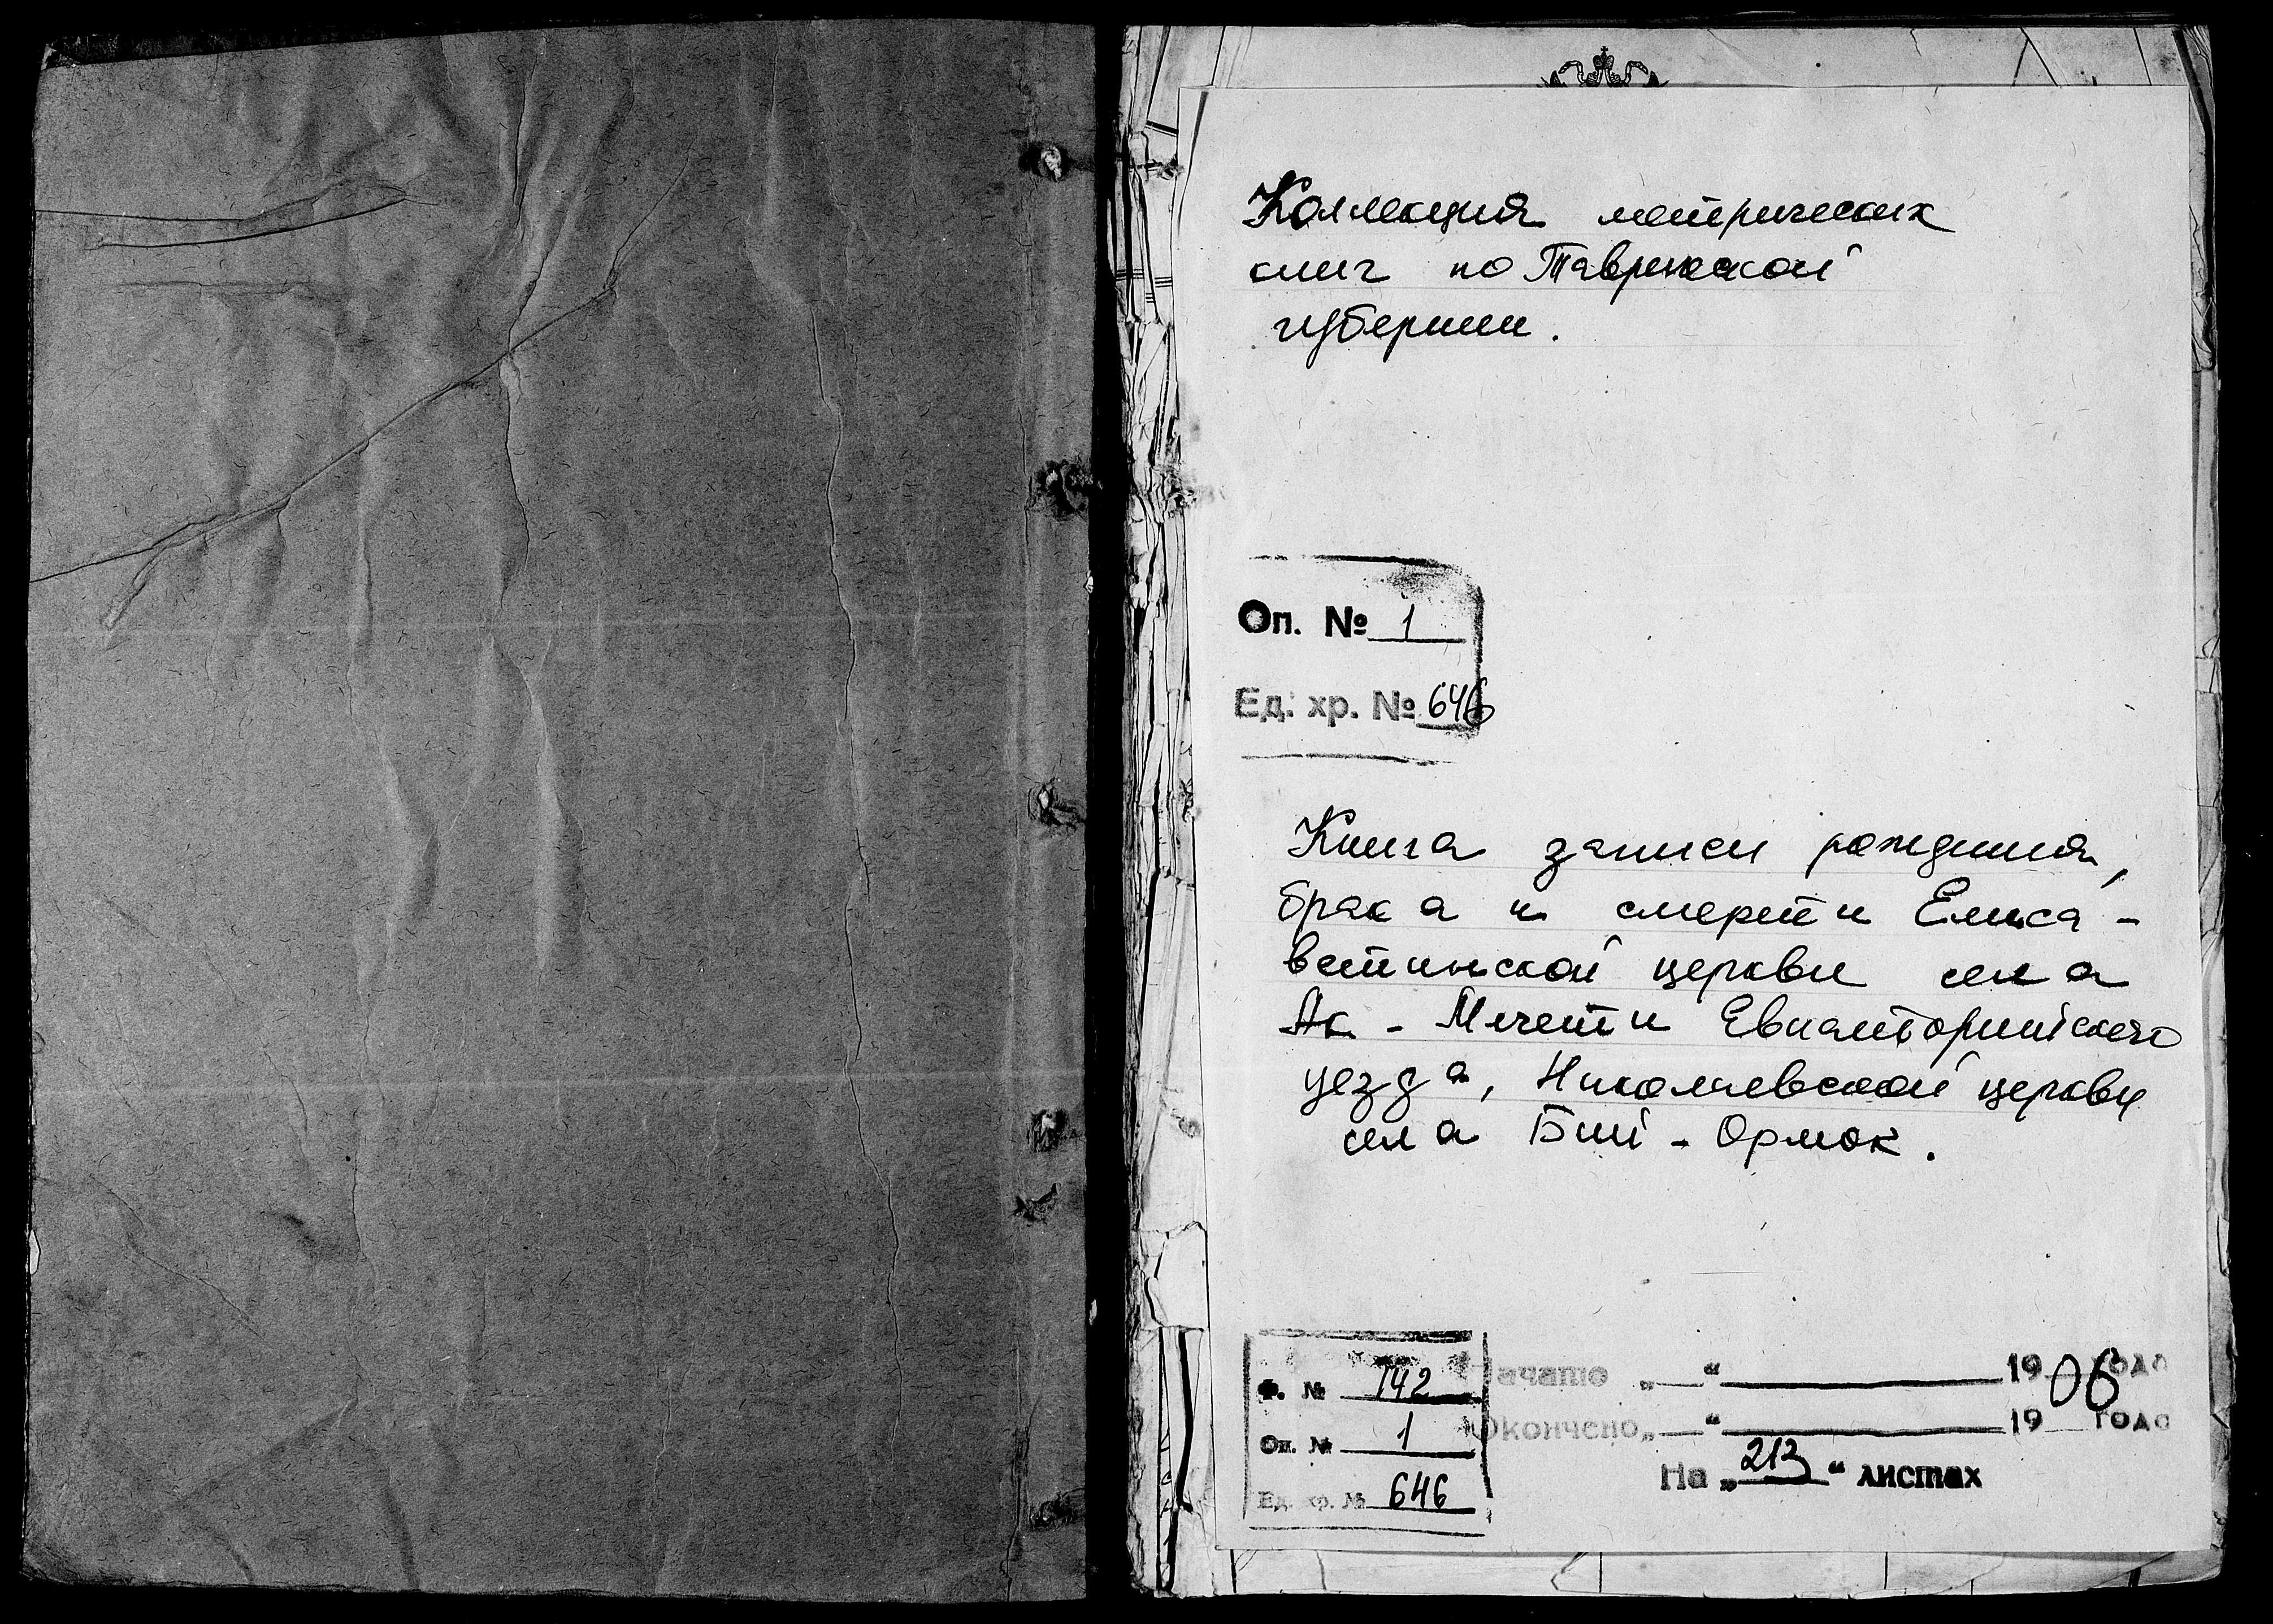 Коллекция метрических
книг по Таврической
губернии.
Оп. № 1
Ед. хр. № 646
Книга записи рождения,
брака и смерти Елиса-
ветинской церкви села
Ак-Мечети Евпаторийского
уезда, Николаевской церкви
села Бий-Ормок.
Ф. № 142
Оп. № 1
Ед. хр. № 646
Начато „ “ 1906 года
Окончено „ “ 19 года
На „213“ листах